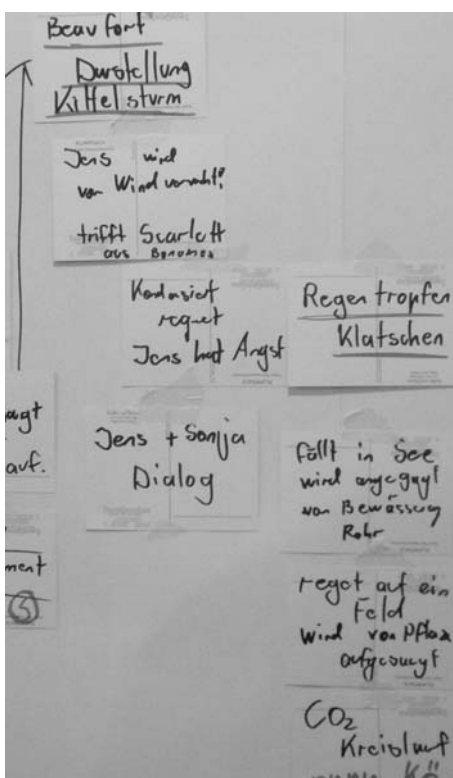 Beaufort
Darstellung
Kittelsturm
Jens wird
von Wind
trifft Scarlett
aus
regnet
Jens hat Angst
Regentropfen
Klatschen
agt
auf.
Jens + Sonja
Dialog
fällt in See
wird
von Bewässerung
Rohr
ment
5
regnet auf ein
Feld
Wird von
aufgesaugt
CO₂
Kreislauf